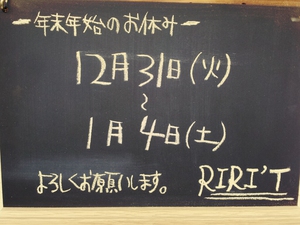 －年末年始のお休み－
12月31日(火)
～
1月4日(土)
よろしくお願いします。
RIRI'T